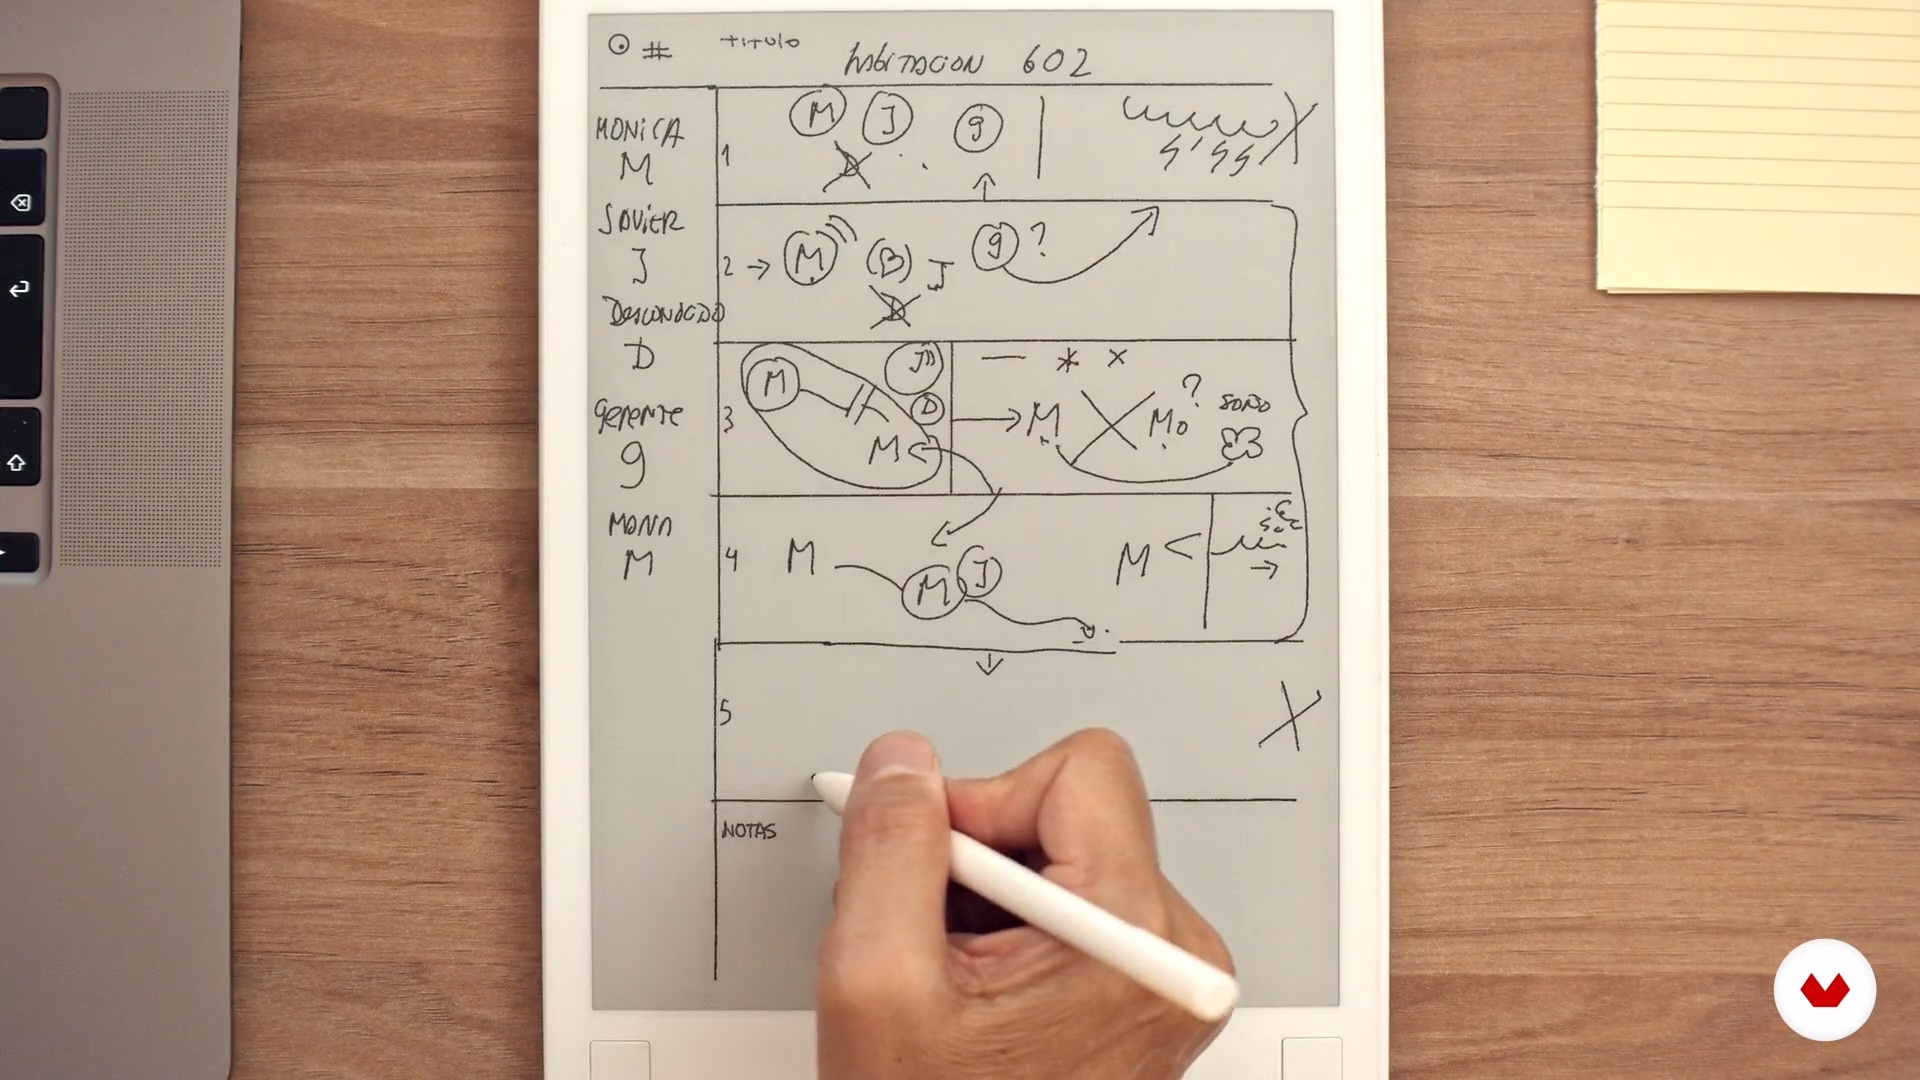 # titulo
HABITACION 602
MONICA
M
JAVIER
J
DESCONOCIDO
D
gerente
g
MONA
M
1
M J g
D
2 → M (B) J g ?
D
3
M J D
M
M Mo ?
SOÑO
4 M M J M <
5
NOTAS